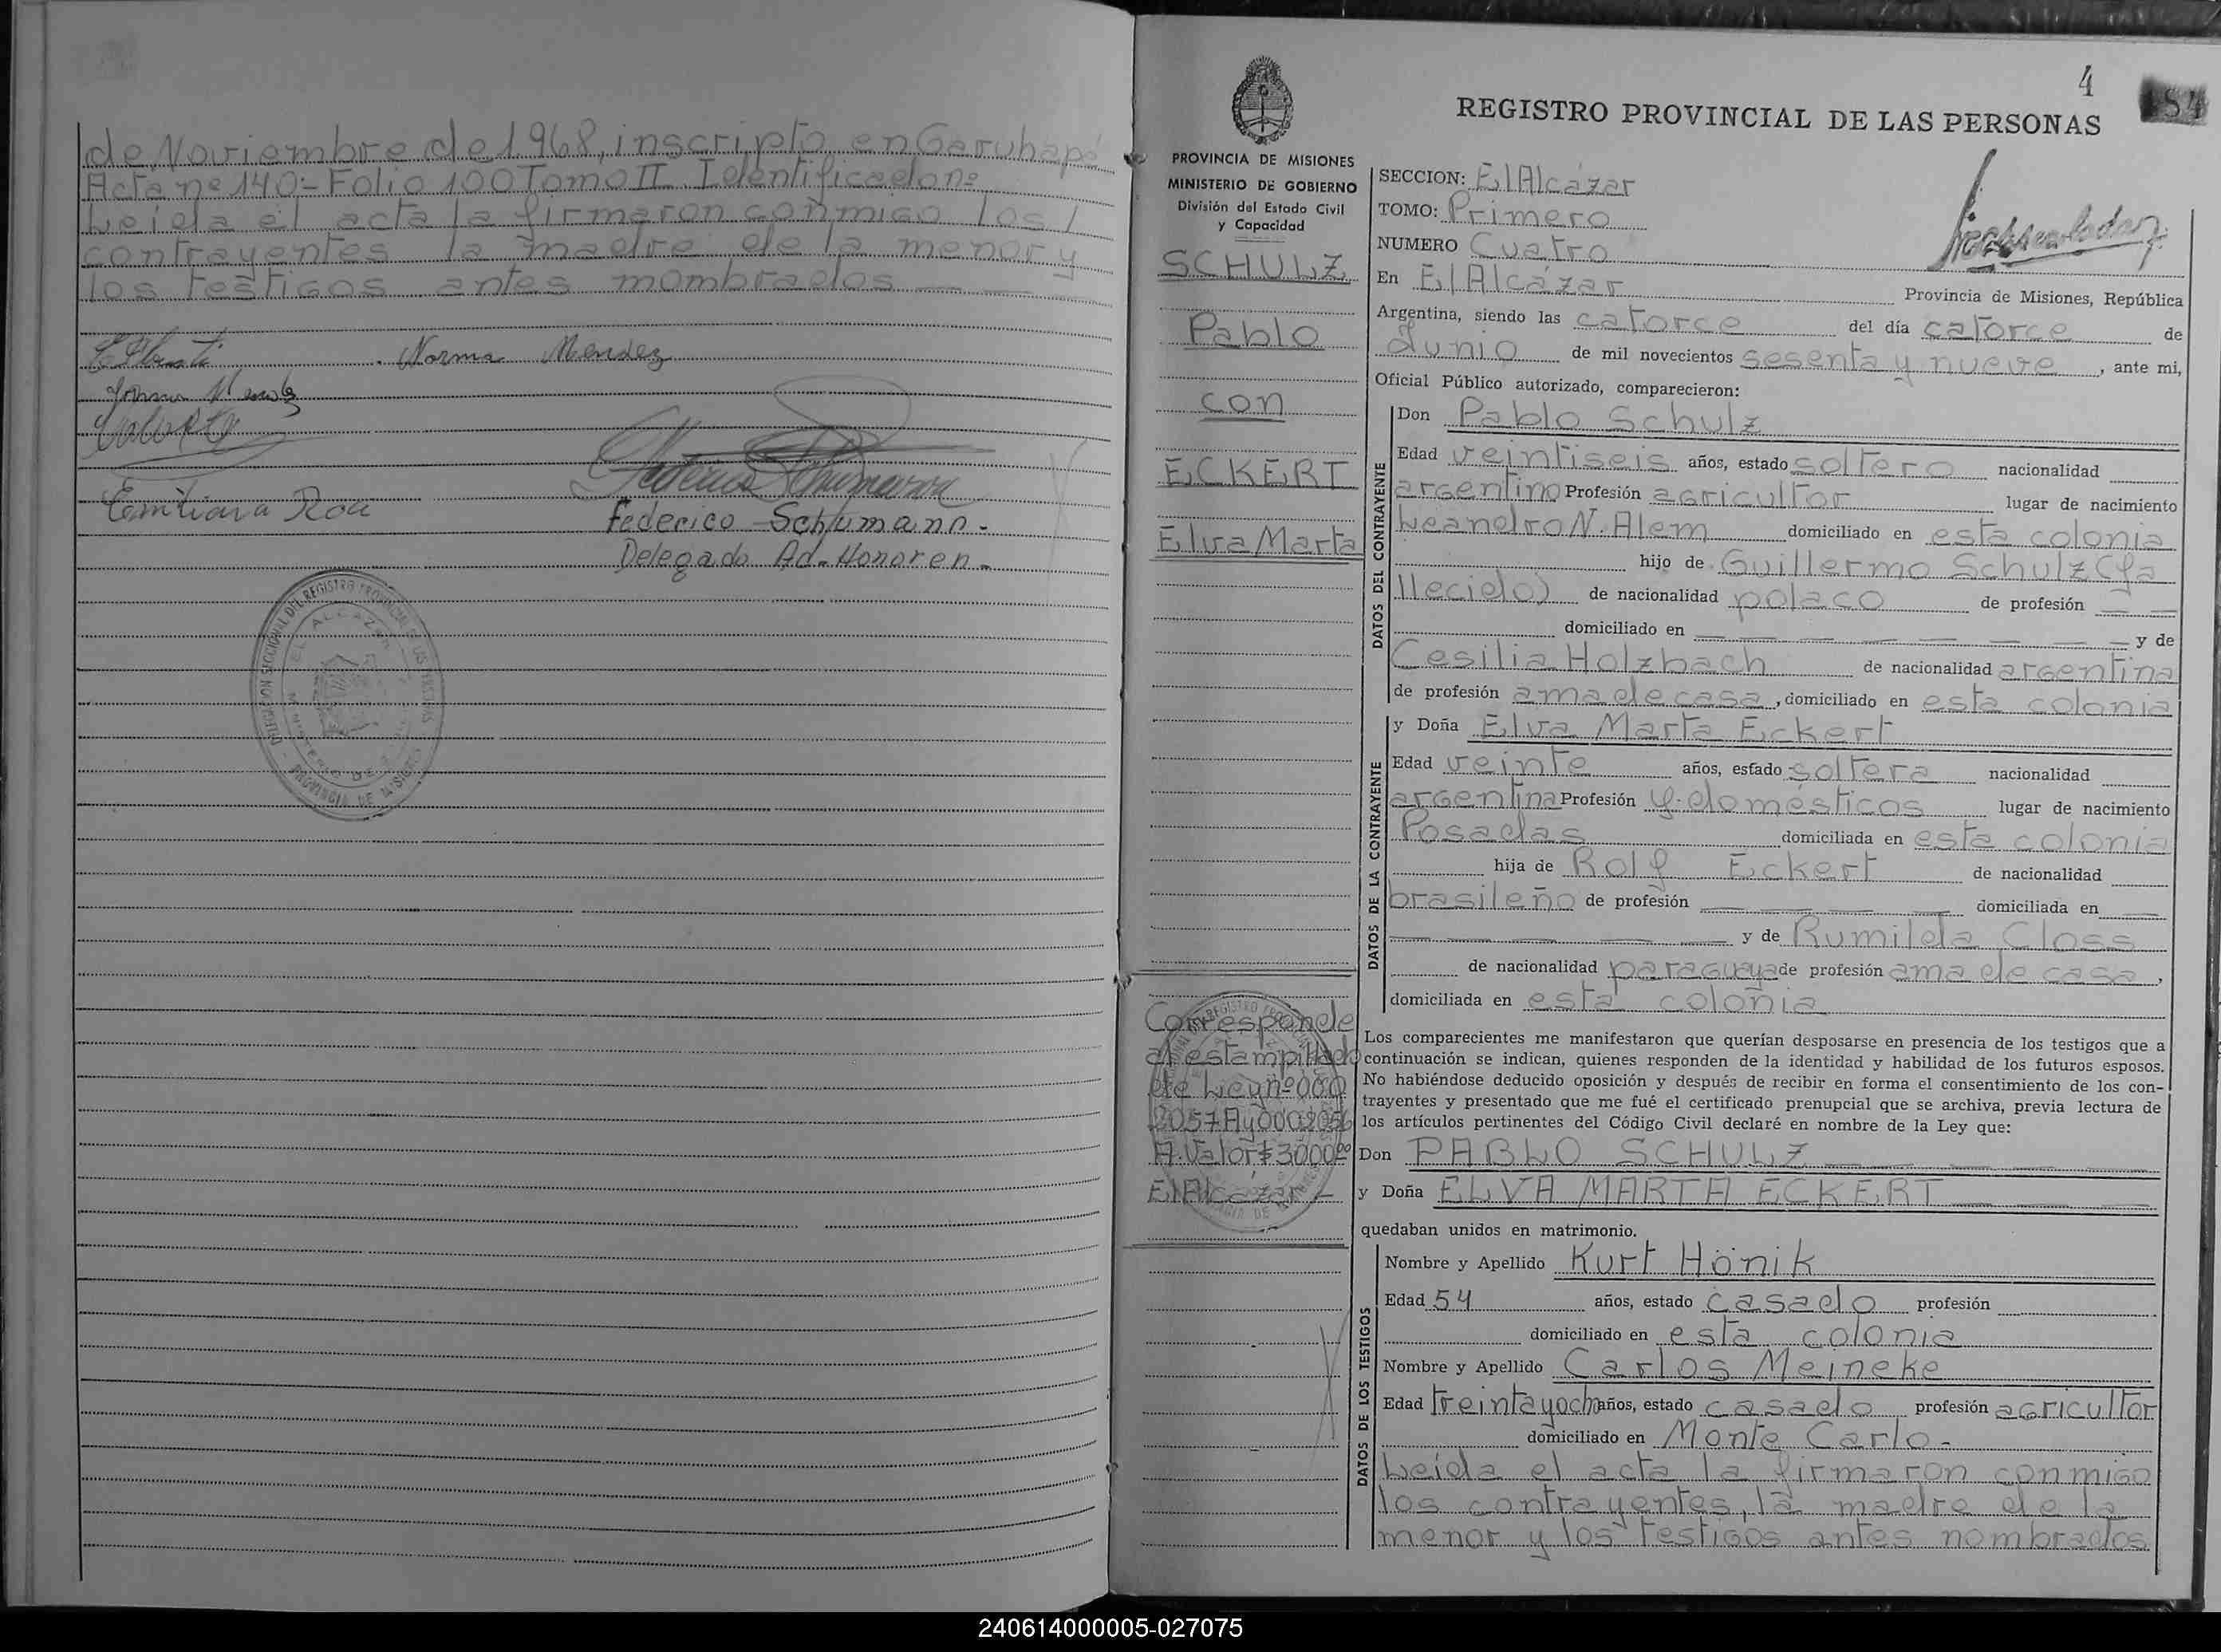 de Noviembre de 1968, inscripto en Garuhapé
Acta nº 140:- Folio 100 Tomo II. Identificado nº
Leida el acta la firmaron conmigo los
contrayentes la madre de la menor y
los testigos antes mombrados
Norma Mendez
Emiliana Roa
Federico Schumann.-
Delegado Ad-Honoren.-
4
184
REGISTRO PROVINCIAL DE LAS PERSONAS
PROVINCIA DE MISIONES
MINISTERIO DE GOBIERNO
División del Estado Civil
y Capacidad
SCHULZ
Pablo
con
ECKERT
Elva Marta
Corresponde
al estampillado
de Ley nº 000
2057A y 0002056
A. Valor $ 3000.00
El Alcázar.-
SECCION: El Alcázar
TOMO: Primero
NUMERO Cuatro
En El Alcázar Provincia de Misiones, República
Argentina, siendo las catorce del día catorce de
Junio de mil novecientos sesenta y nueve, ante mi,
Oficial Público autorizado, comparecieron:
DATOS DEL CONTRAYENTE
Don Pablo Schulz
Edad veintiseis años, estado soltero nacionalidad
argentino Profesión agricultor lugar de nacimiento
Leandro N. Alem domiciliado en esta colonia
hijo de Guillermo Schulz (fa
llecido) de nacionalidad polaco de profesión — —
domiciliado en — — — — — — — y de
Cesilia Holzbach de nacionalidad argentina
de profesión ama de casa, domiciliado en esta colonia
DATOS DE LA CONTRAYENTE
y Doña Elva Marta Eckert
Edad veinte años, estado soltera nacionalidad
argentina Profesión q. domésticos lugar de nacimiento
Posadas domiciliada en esta colonia
hija de Rolf Eckert de nacionalidad
brasileño de profesión — — — — domiciliada en —
— — — — y de Rumilda Closs
de nacionalidad paraguaya de profesión ama de casa,
domiciliada en esta colonia
Los comparecientes me manifestaron que querían desposarse en presencia de los testigos que a
continuación se indican, quienes responden de la identidad y habilidad de los futuros esposos.
No habiéndose deducido oposición y después de recibir en forma el consentimiento de los con-
trayentes y presentado que me fué el certificado prenupcial que se archiva, previa lectura de
los artículos pertinentes del Código Civil declaré en nombre de la Ley que:
Don PABLO SCHULZ — — — — —
y Doña ELVA MARTA ECKERT — — —
quedaban unidos en matrimonio.
DATOS DE LOS TESTIGOS
Nombre y Apellido Kurt Hönik
Edad 54 años, estado casado profesión
domiciliado en esta colonia
Nombre y Apellido Carlos Meineke
Edad treinta y ocho años, estado casado profesión agricultor
domiciliado en Monte Carlo.-
Leida el acta la firmaron conmigo
los contrayentes, la madre de la
menor y los testigos antes nombrados
240614000005-027075